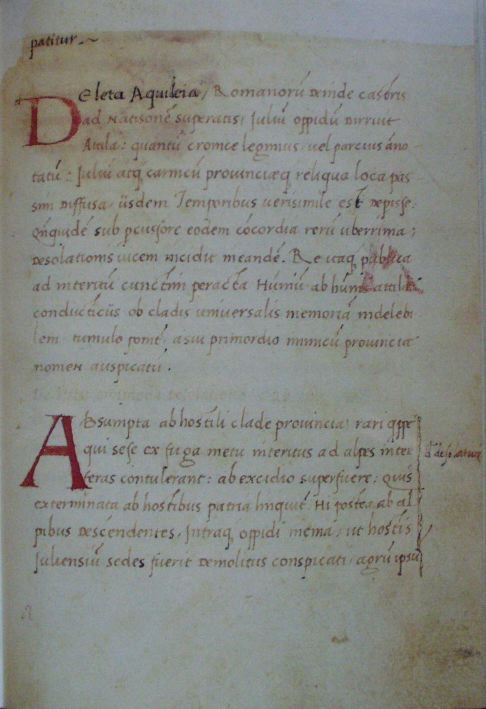 patitur
Deleta Aquileia, Romanorū deinde castris
ad Natisonē superatis, Juliū oppidū Diruit
Attila: quantū cronice legimus, vel parcius ano
tatū: Juliū atq carnicū provinciæq reliqua loca pas
sim diffusa, iisdem Temporibus verisimile est
sub eodem cōcordia rerū uberrima;
desolationis vicem incidit meandē. Re itaq publica
ad interitū cunctim peracta Huniū ab hunis attila
conducticiis ob cladis universalis memoriā indelebi
lem tumulo ponit, a sui primordio provincia
nomen auspicatū.
Absumpta ab hostili clade provincia, rari qppe
qui sese ex fuga metu interitus ad alpes inter
feras contulerant: ab excidio superfuere: Quis
exterminata ab hostibus patria linquit. Hi postea ab al
pibus descendentes, Intraq oppidi menia, ut hostis
Juliensiū sedes fuerit demolitus conspicati, agrū ipsū